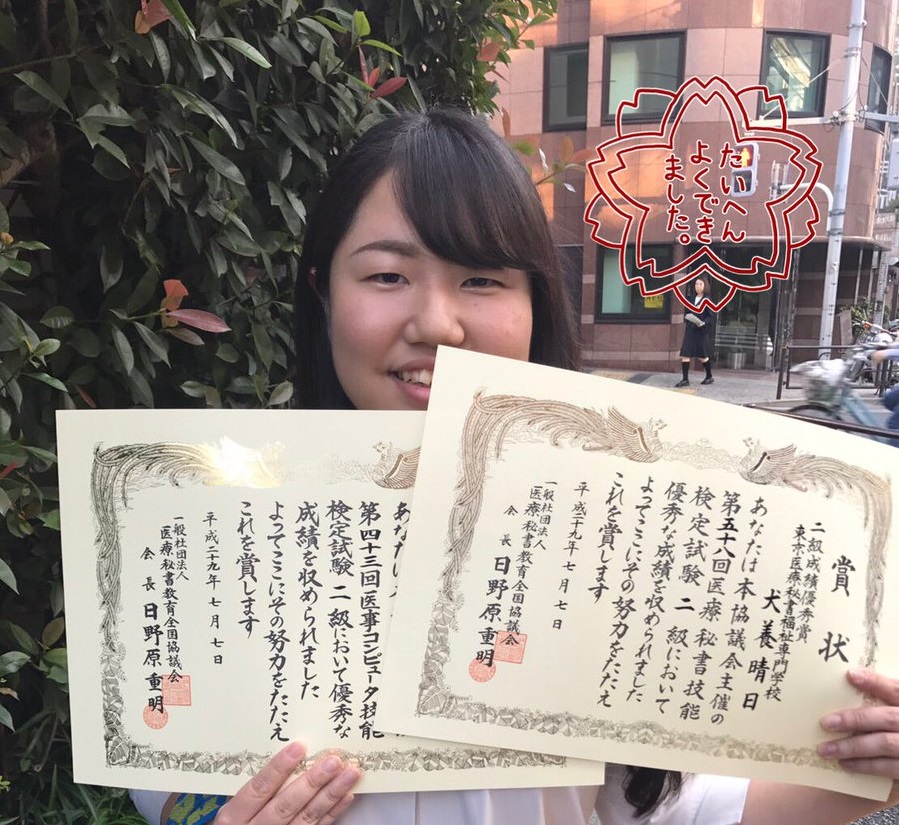 たいへん
よくでき
ました。
賞状
二級成績優秀賞
東京医療秘書福祉専門学校
犬養晴日
あなたは本協議会主催の
第五十八回医療秘書技能
検定試験二級において
優秀な成績を収められました
よってここにその努力をたたえ
これを賞します
平成二十九年七月七日
一般社団法人
医療秘書教育全国協議会
会長 日野原重明
第四十三回医事コンピュータ技能
検定試験二級において優秀な
成績を収められました
よってここにその努力をたたえ
これを賞します
平成二十九年七月七日
一般社団法人
医療秘書教育全国協議会
会長 日野原重明